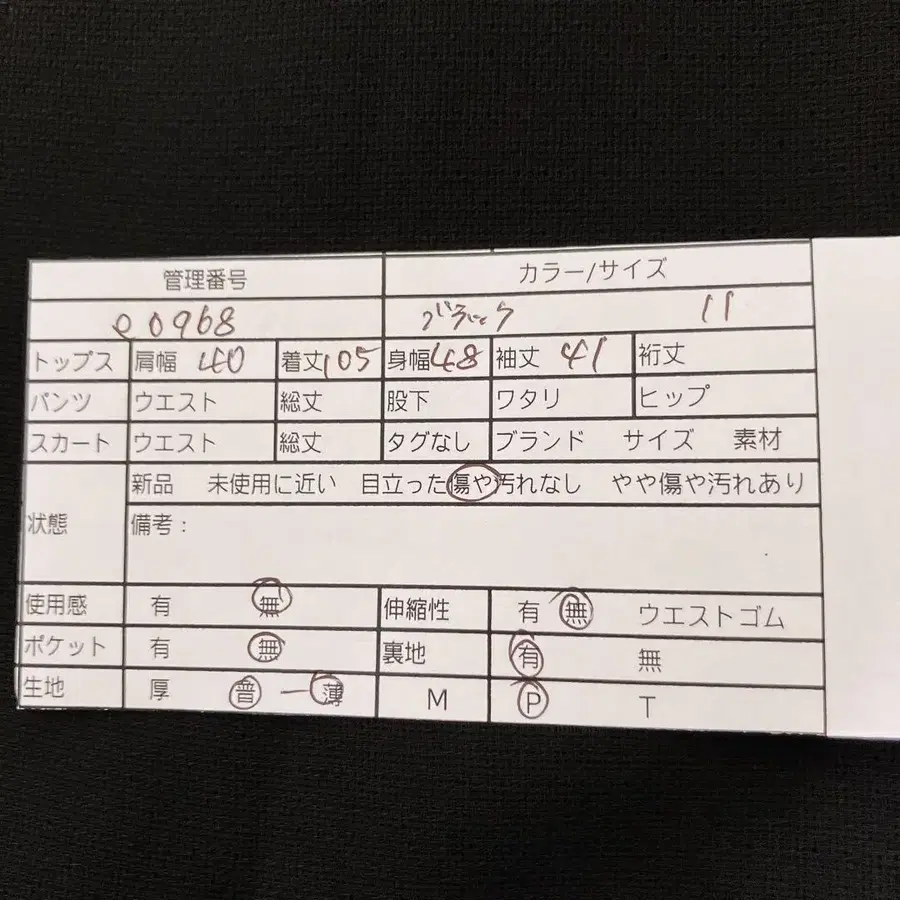 管理番号 カラー/サイズ
e0968 ブラック 11
トップス 肩幅 40 着丈105 身幅48 袖丈 41 裄丈
パンツ ウエスト 総丈 股下 ワタリ ヒップ
スカート ウエスト 総丈 タグなし ブランド サイズ 素材
状態 新品 未使用に近い 目立った傷や汚れなし やや傷や汚れあり
備考：
使用感 有 無 伸縮性 有 無 ウエストゴム
ポケット 有 無 裏地 有 無
生地 厚 普 ー 薄 M P T